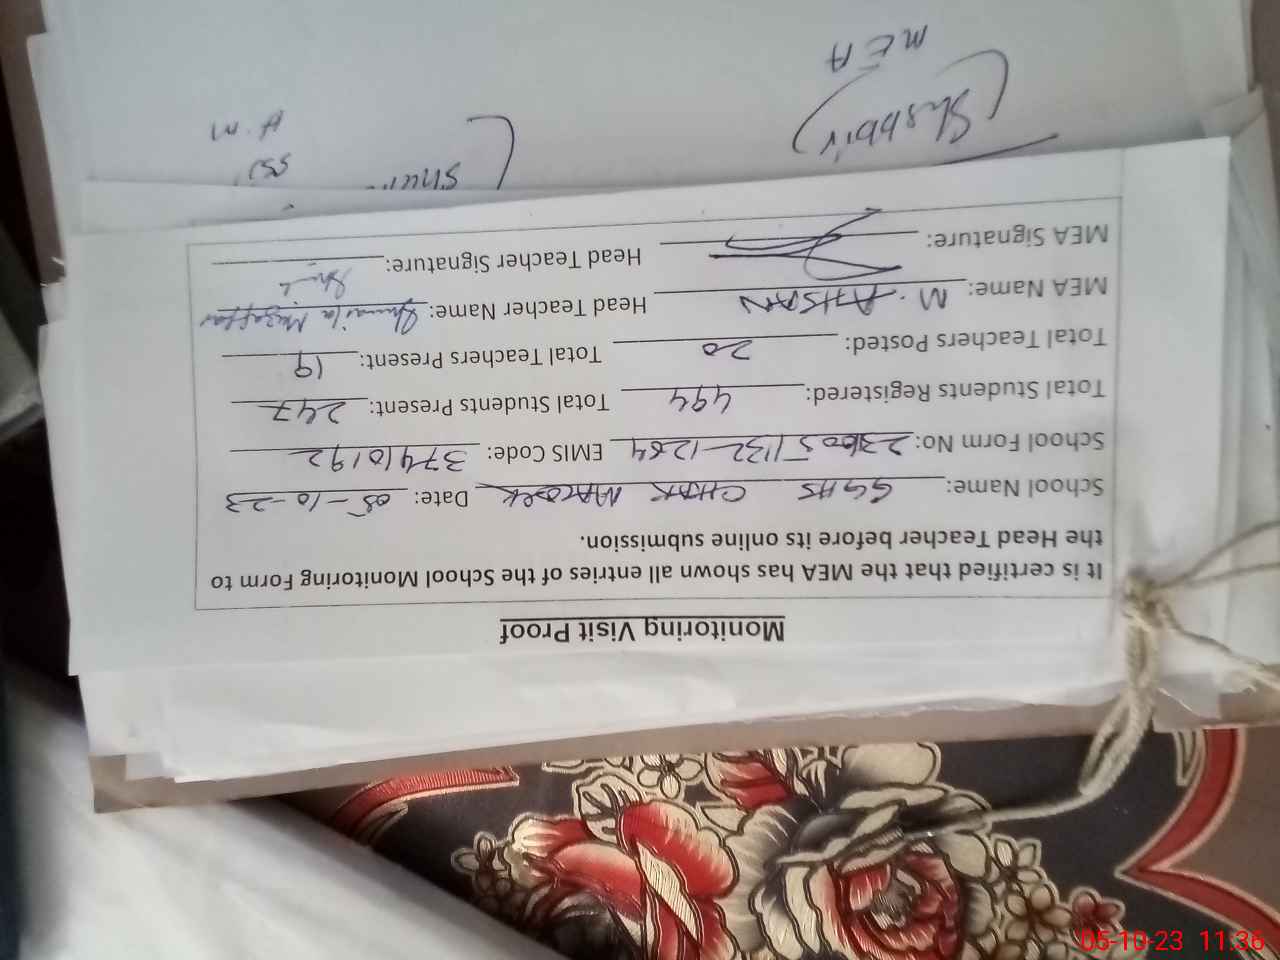 Monitoring Visit Proof
It is certified that the MEA has shown all entries of the School Monitoring Form to
the Head Teacher before its online submission.
School Name: GGHS CHAK Date: 05-10-23
School Form No: EMIS Code: 37410192
Total Students Registered: 494 Total Students Present: 247
Total Teachers Posted: 20 Total Teachers Present: 19
MEA Name: M. AHSAN Head Teacher Name: Shumaila Muzaffar
MEA Signature: Head Teacher Signature:
(Shabbir)
MEA
H.M
05-10-23 11:36